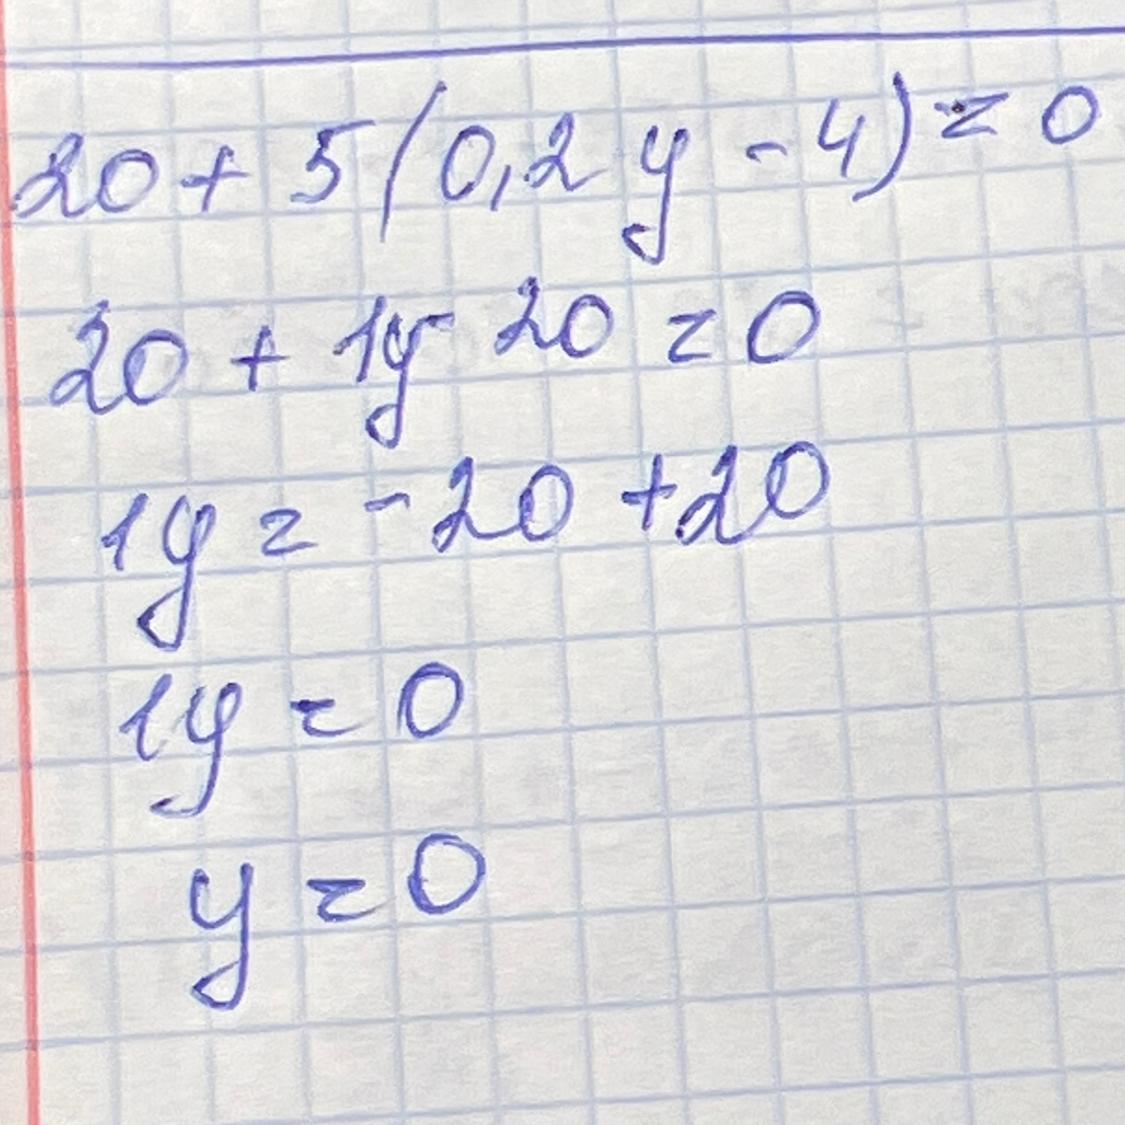 20 + 5(0,2y - 4) = 0
20 + 1y - 20 = 0
1y = -20 + 20
1y = 0
y = 0